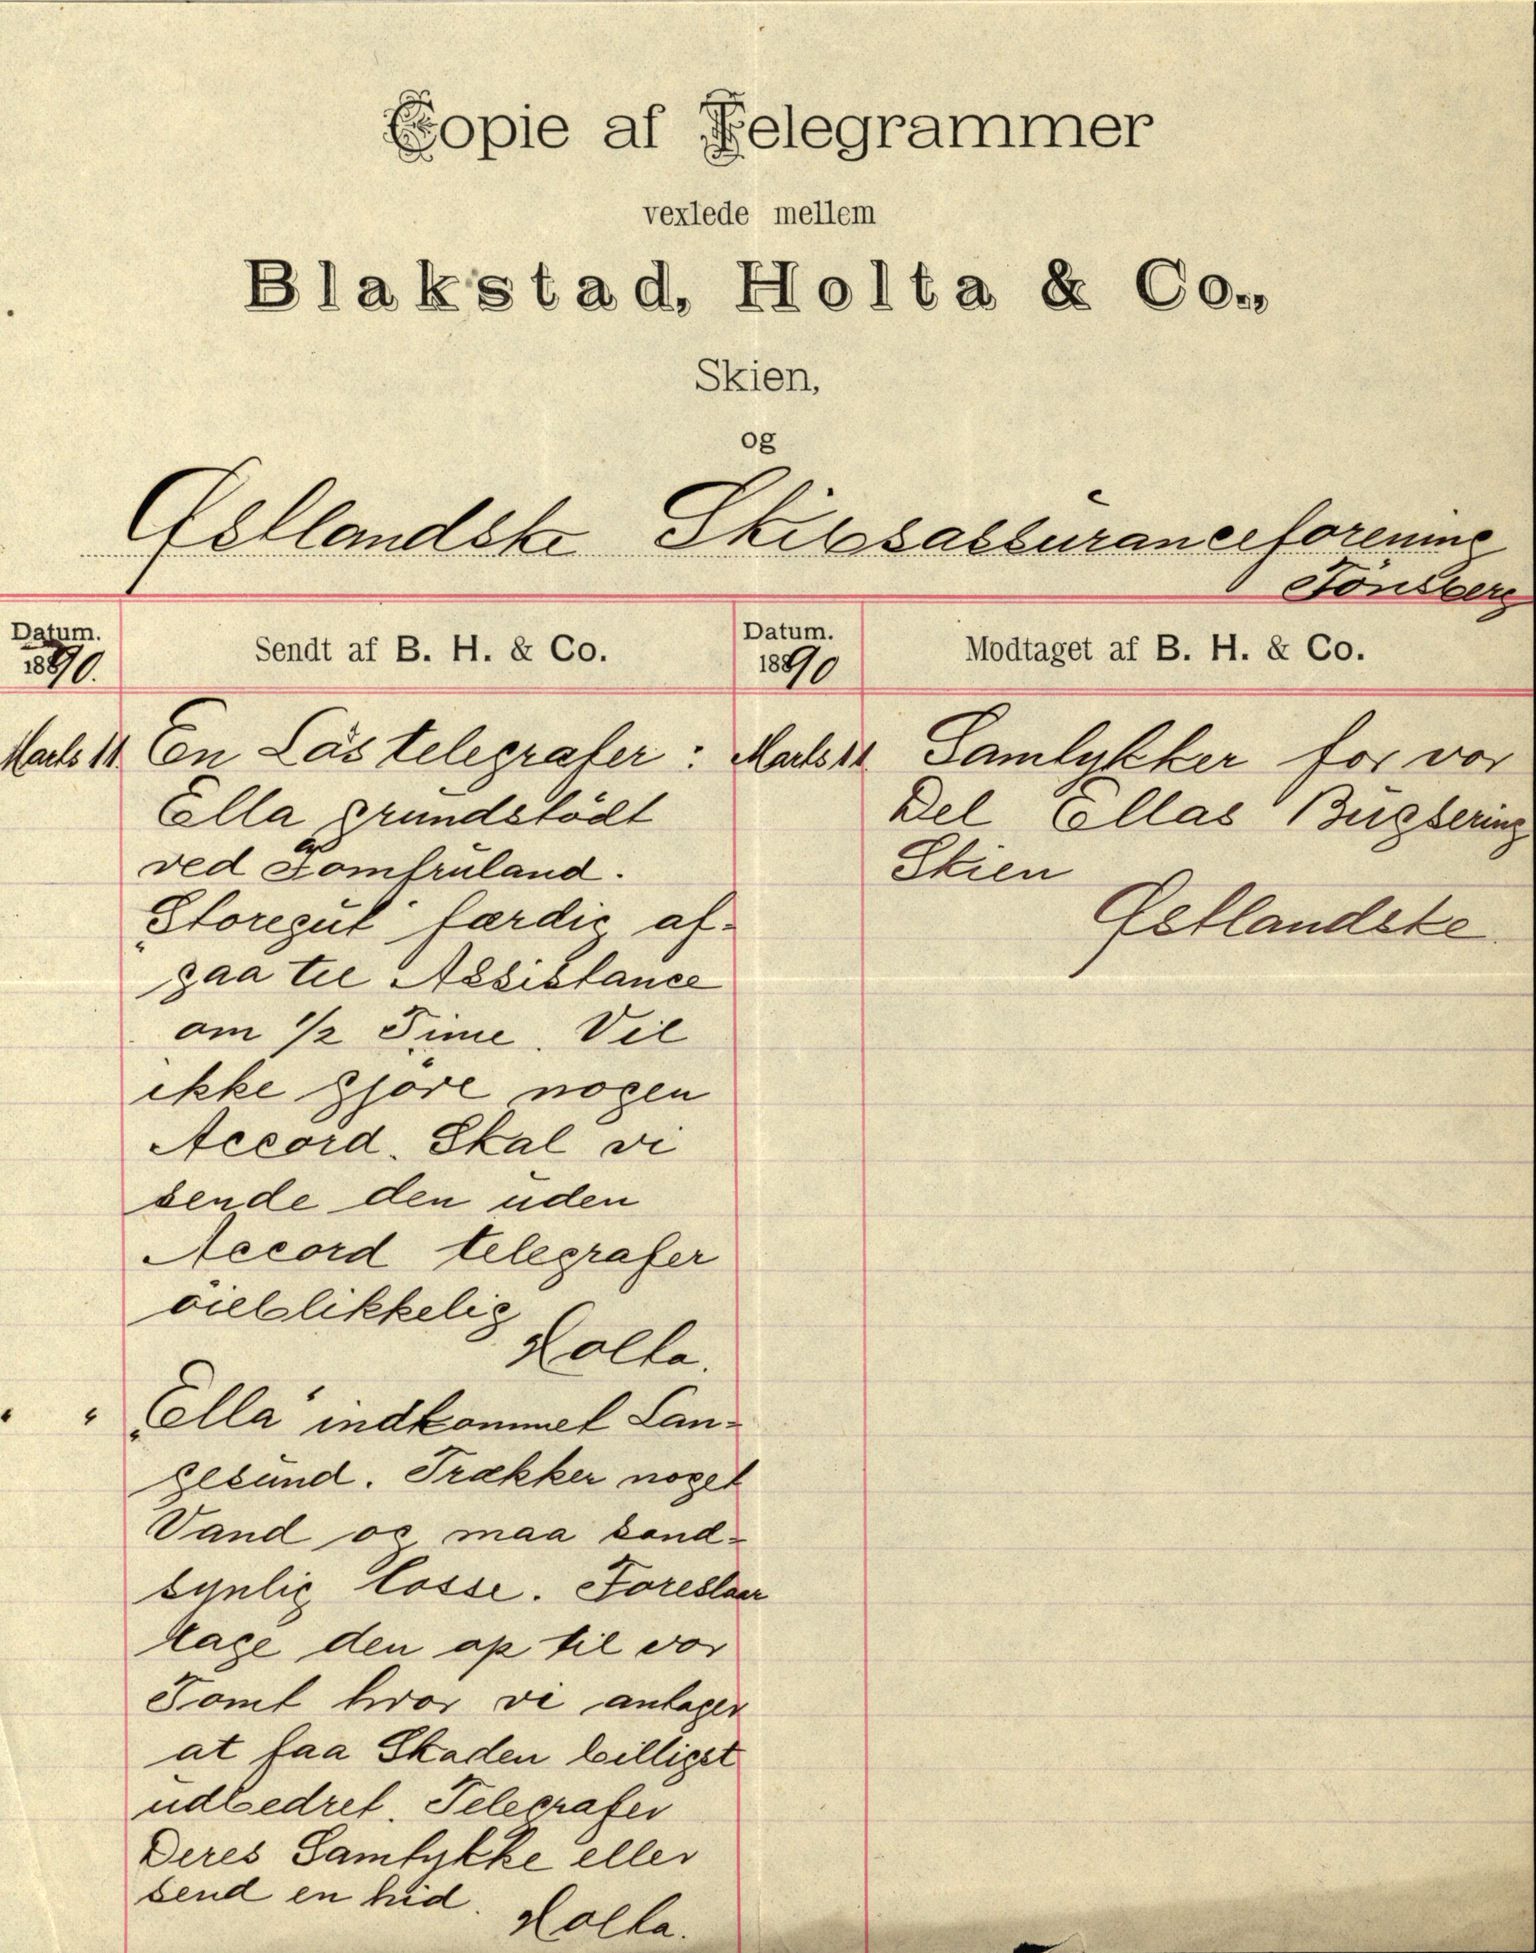 Copie af Telegrammer
vexlede mellem
Blakstad, Holta & Co.,
Skien,
og
Østlandske Skibsassuranceforening
Tönsberg
Datum.
1890.
Sendt af B. H. & Co.
Datum.
1890
Modtaget af B. H. & Co.
Marts 11.
En Lås telegrafer :
Ella grundstödt
ved Jomfruland.
„Storegut“ færdig af-
gaa til Assistance
om 1/2 Time. Vil
ikke gjöre nogen
Accord. Skal vi
sende den uden
Accord telegrafer
öieblikkelig
Holta.
" "
„Ella“ indkommet Lan-
gesund. Trækker noget
Vand og maa sand-
synlig losse. Foreslaar
tage den op til vor
Tomt hvor vi antager
at faa Skaden billigst
udbedret. Telegrafer
Deres Samtykke eller
send en hid.
Holta.
Marts 11
Samtykker for vor
Del Ellas Bugsering
Skien
Østlandske